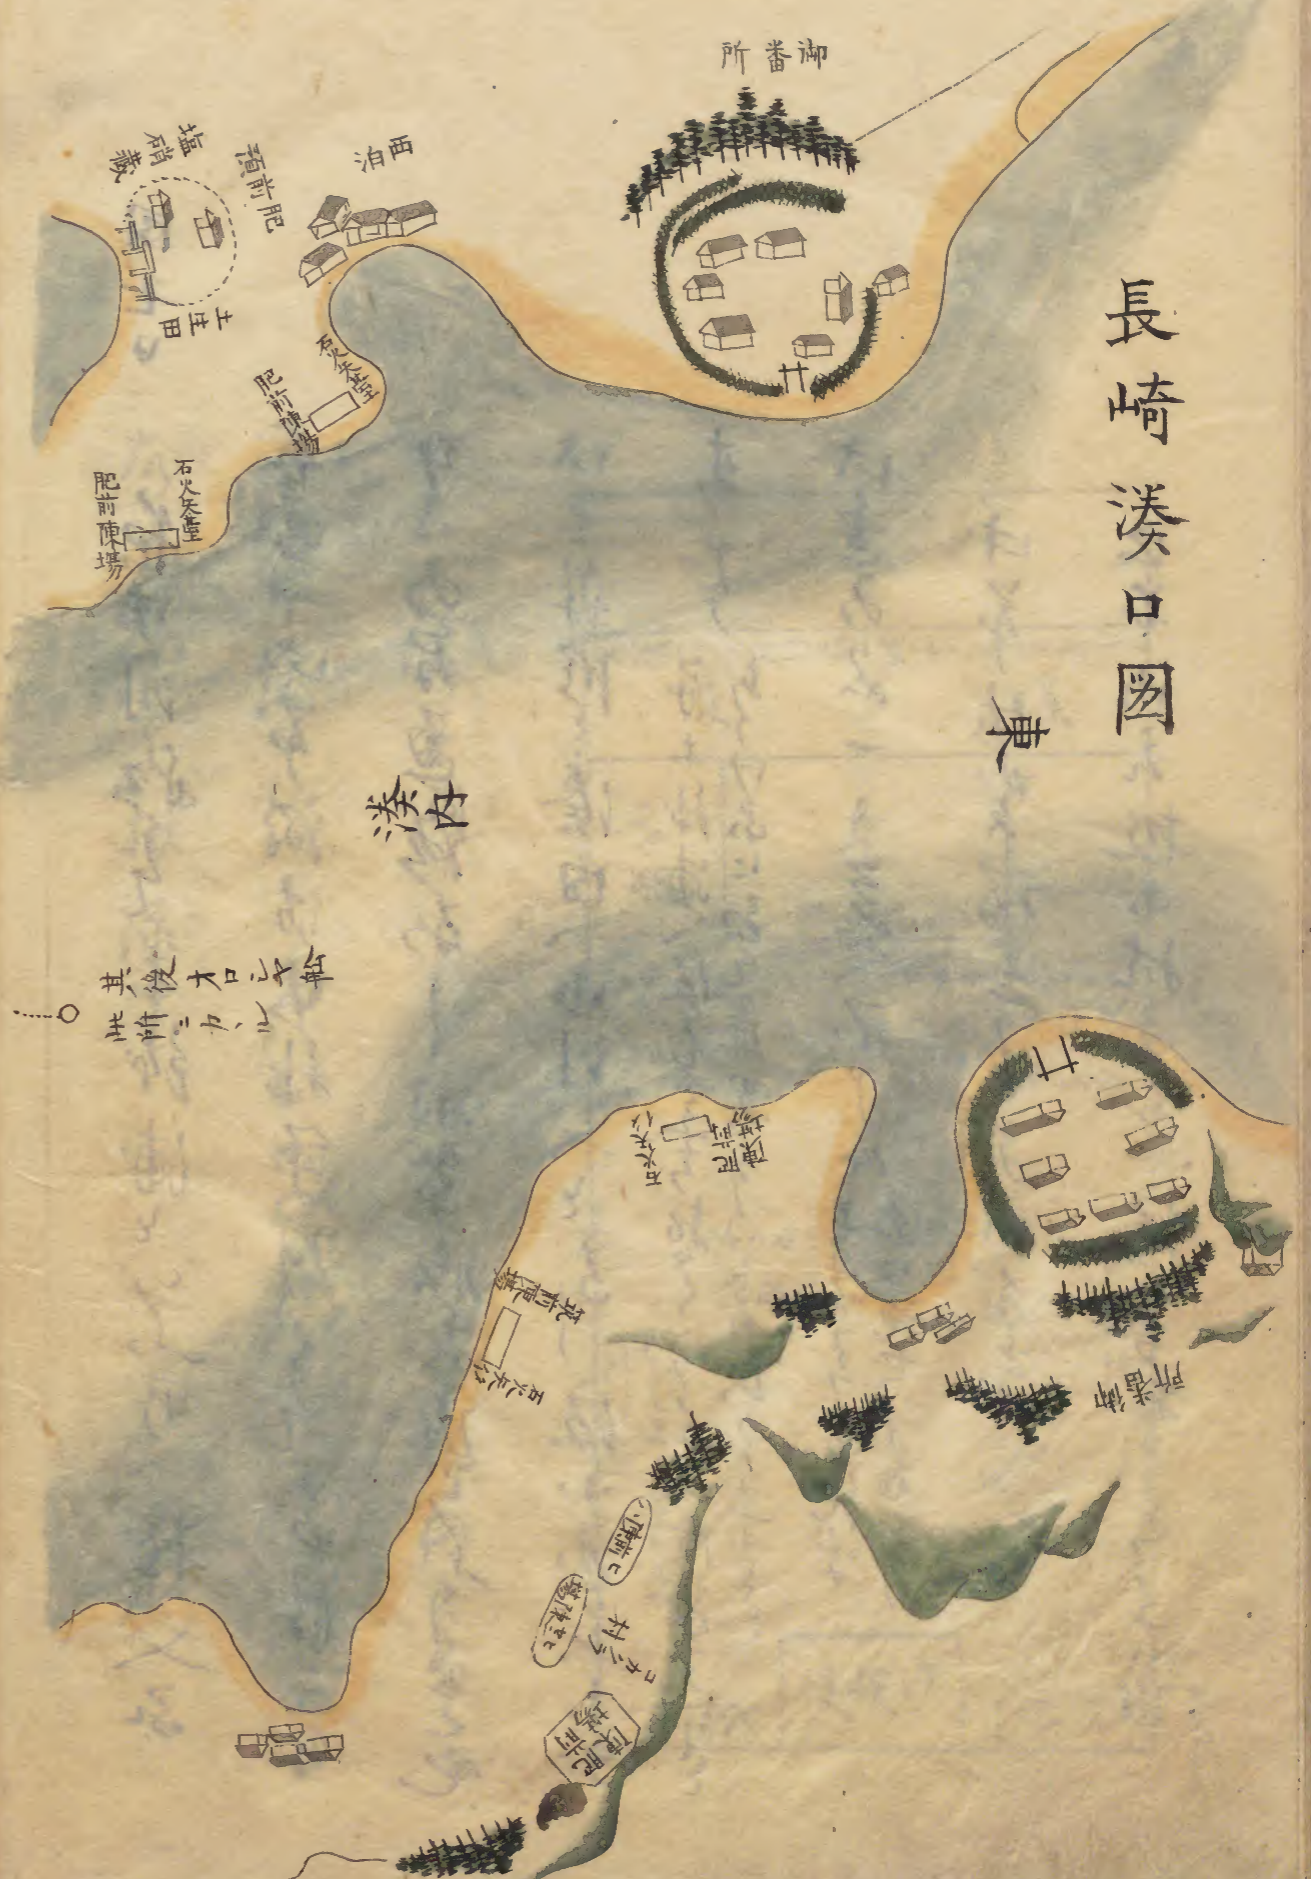 長崎湊口図
東
御番所
西泊
肥前預
塩硝蔵
土生田
石火矢臺
肥前陳場
石火矢臺
肥前陳場
湊内
其後オロシヤ舩
此所ニカヽル
肥前
陳場
石火矢台
筑前陳場
石火矢台
御番所
コカクラ
村
肥前
陳場